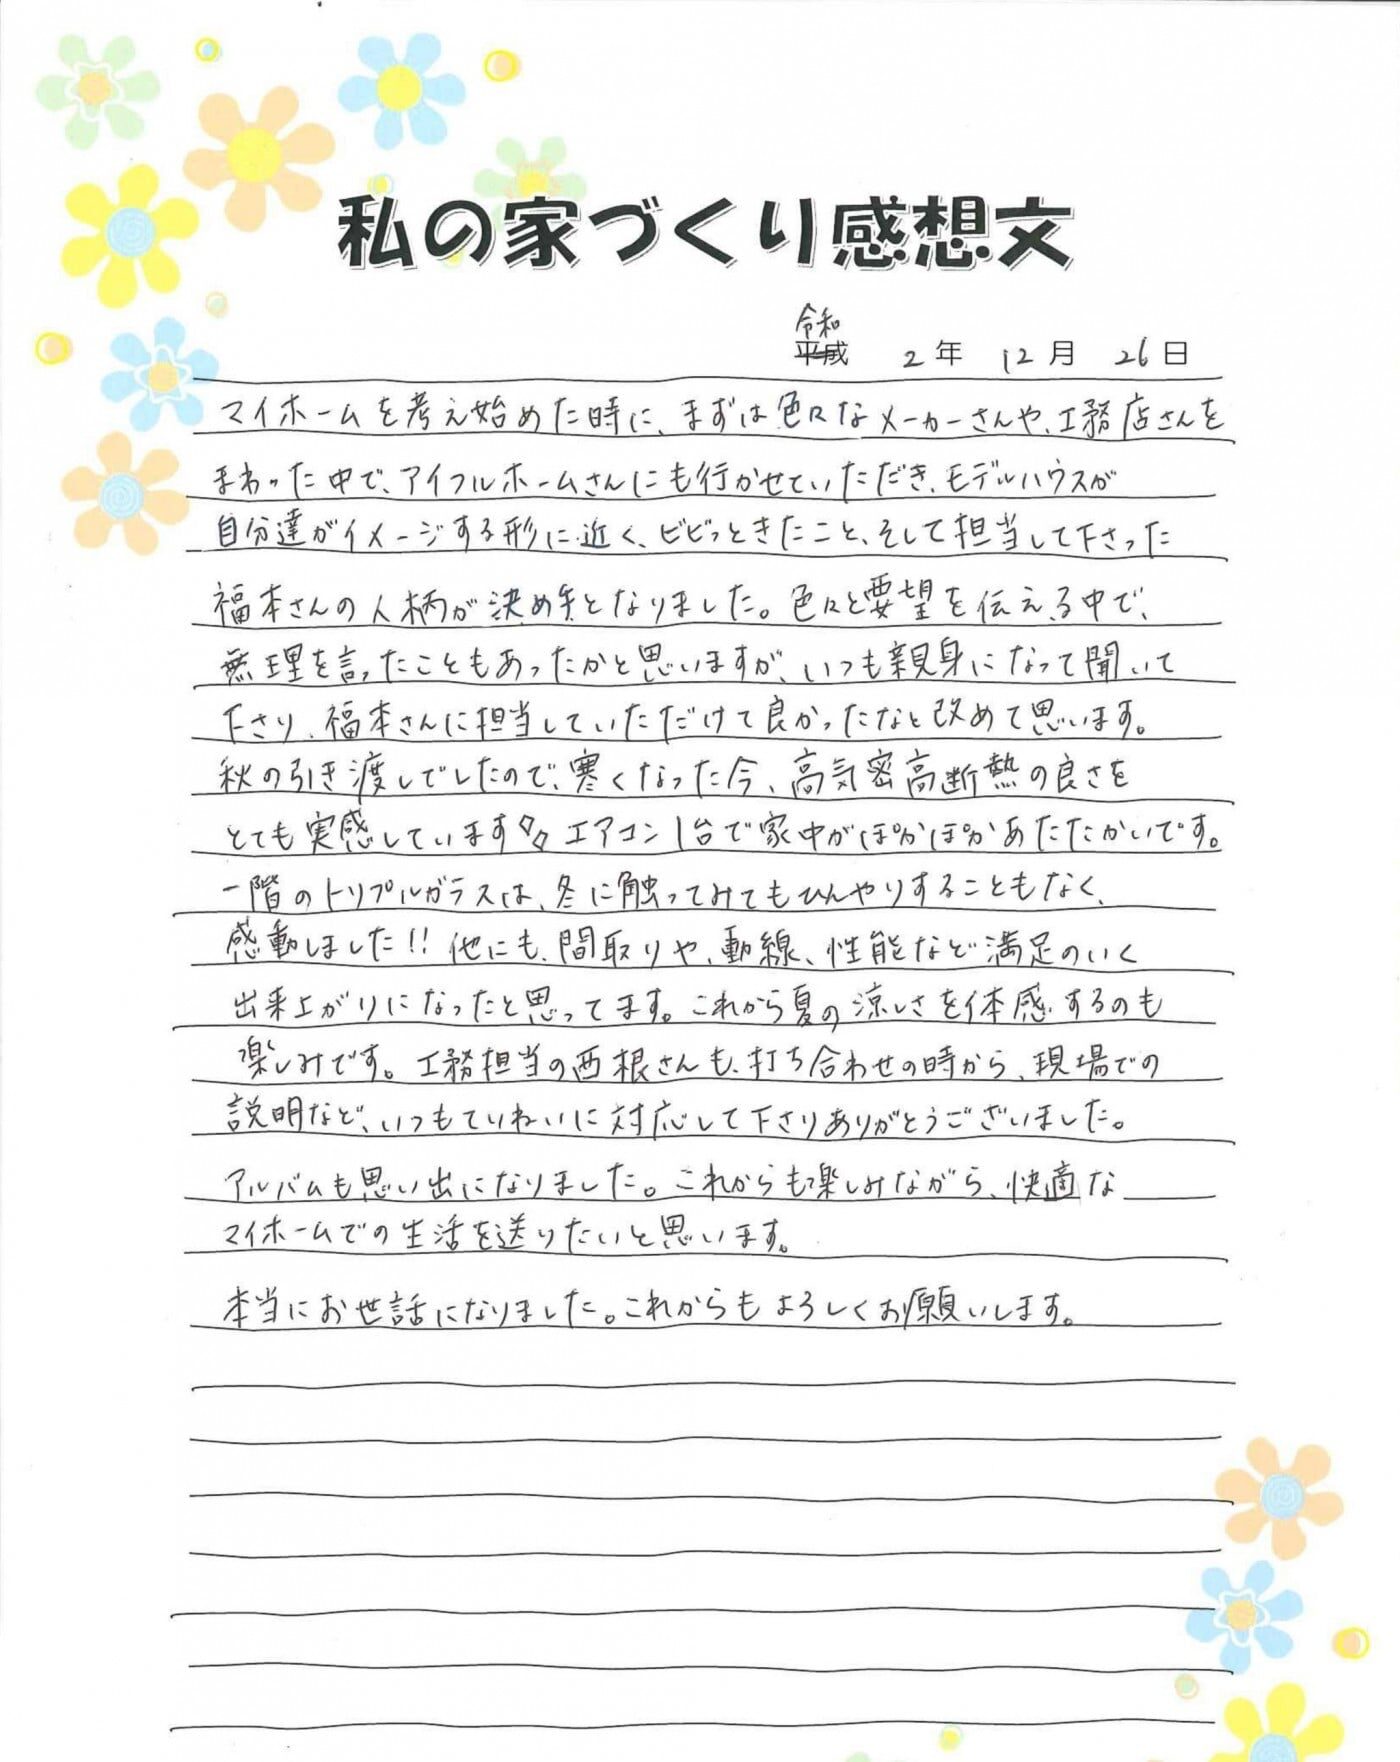 私の家づくり感想文
令和
平成 2年 12月 26日
マイホームを考え始めた時に、まずは色々なメーカーさんや、工務店さんを
まわった中で、アイフルホームさんにも行かせていただき、モデルハウスが
自分達がイメージする形に近く、ビビっときたこと、そして担当して下さった
福本さんの人柄が決め手となりました。色々と要望を伝える中で、
無理を言ったこともあったかと思いますが、いつも親身になって聞いて
下さり、福本さんに担当していただけて良かったなと改めて思います。
秋の引き渡しでしたので、寒くなった今、高気密高断熱の良さを
とても実感しています♪♪ エアコン1台で家中がぽかぽかあたたかいです。
一階のトリプルガラスは、冬に触ってみてもひんやりすることもなく、
感動しました!! 他にも、間取りや、動線、性能など満足のいく
出来上がりになったと思ってます。これから夏の涼しさを体感するのも
楽しみです。工務担当の西根さんも、打ち合わせの時から、現場での
説明など、いつもていねいに対応して下さりありがとうございました。
アルバムも思い出になりました。これからも楽しみながら、快適な
マイホームでの生活を送りたいと思います。
本当にお世話になりました。これからもよろしくお願いします。